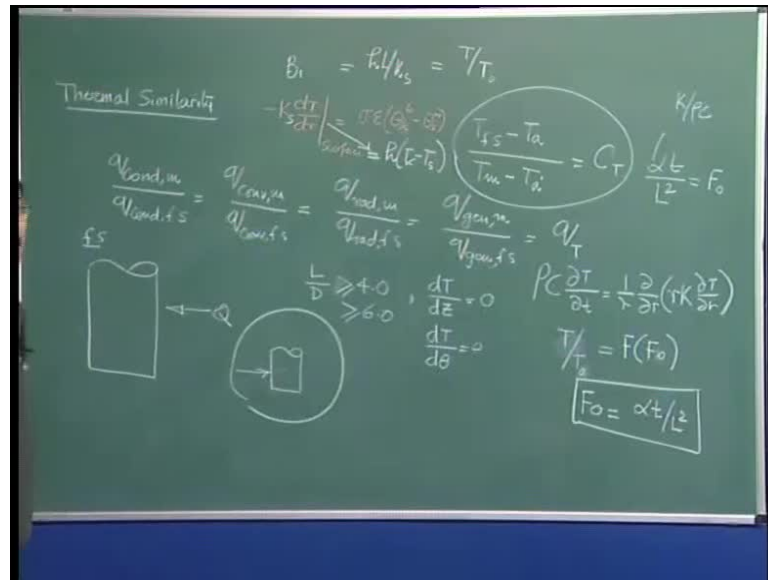 Bi = hL/ks = T/T₀
Thermal Similarity
-Ks dT/dr |surface = σε(θ⁴ - θ⁴)
= h(T - Ts)
(Tfs - Ta)/(Tm - Ta) = CT
K/ρc
αt/L² = Fo
qcond,m/qcond,fs = qconv,m/qconv,fs = qrad,m/qrad,fs = qgen,m/qgen,fs = qT
fs
Q
L/D ≥ 4.0, dT/dz = 0
≥ 6.0
dT/dθ = 0
ρC ∂T/∂t = 1/r ∂/∂r (rK ∂T/∂r)
T/T₀ = F(Fo)
Fo = αt/L²